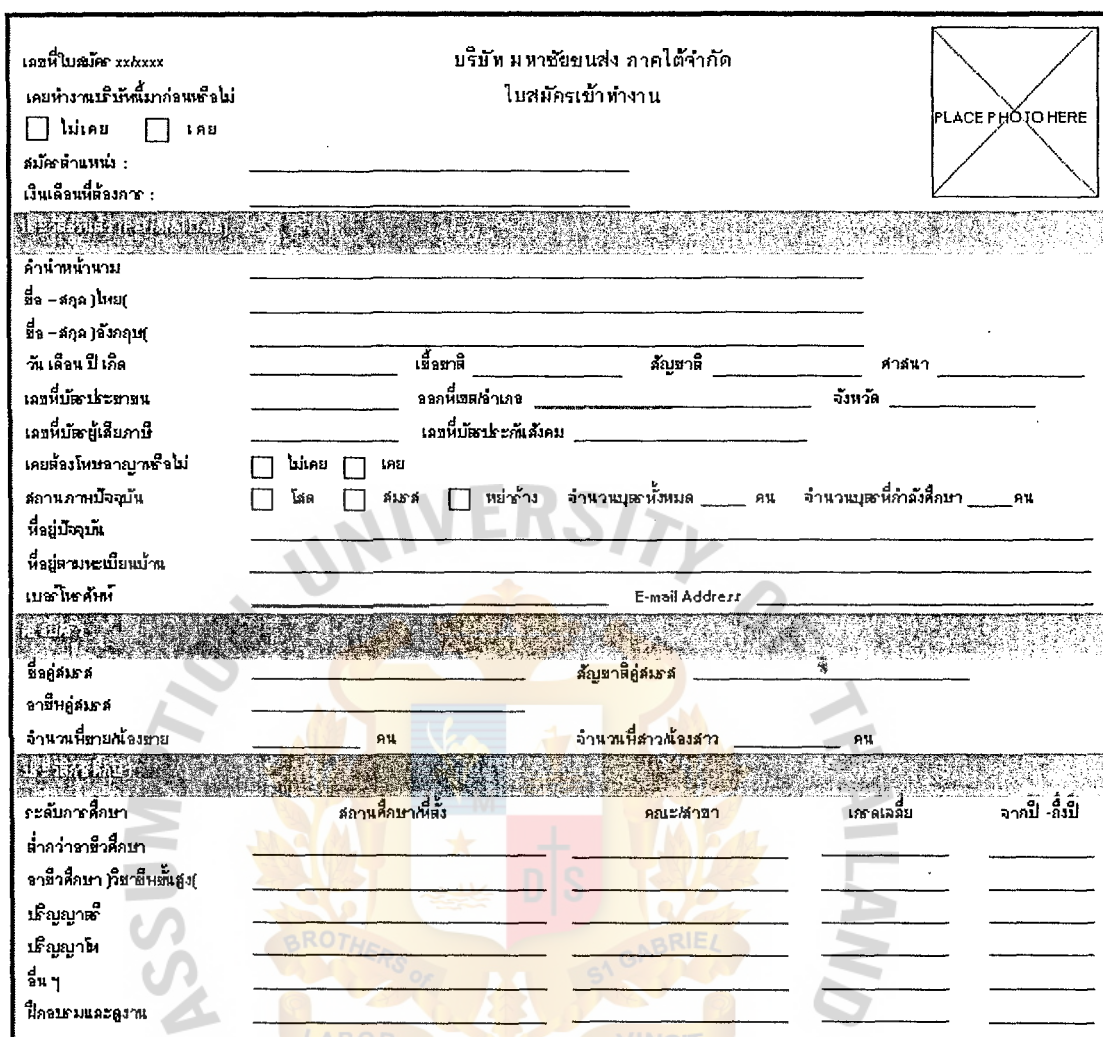 เลขที่ใบสมัคร xx/xxxx
บริษัท มหาชัยขนส่ง ภาคใต้จำกัด
เคยทำงานบริษัทนี้มาก่อนหรือไม่
ใบสมัครเข้าทำงาน
PLACE PHOTO HERE
ไม่เคย เคย
สมัครตำแหน่ง :
เงินเดือนที่ต้องการ :
คำนำหน้านาม
ชื่อ – สกุล )ไทย(
ชื่อ – สกุล )อังกฤษ(
วัน เดือน ปี เกิด เชื้อชาติ สัญชาติ ศาสนา
เลขที่บัตรประชาชน ออกที่เขต/อำเภอ จังหวัด
เลขที่บัตรผู้เสียภาษี เลขที่บัตรประกันสังคม
เคยต้องโทษอาญาหรือไม่ ไม่เคย เคย
สถานภาพปัจจุบัน โสด สมรส หย่าร้าง จำนวนบุตรทั้งหมด คน จำนวนบุตรที่กำลังศึกษา คน
ที่อยู่ปัจจุบัน
ที่อยู่ตามทะเบียนบ้าน
เบอร์โทรศัพท์ E-mail Address
ชื่อคู่สมรส สัญชาติคู่สมรส
อาชีพคู่สมรส
จำนวนพี่ชาย/น้องชาย คน จำนวนพี่สาว/น้องสาว คน
ระดับการศึกษา สถานศึกษา/ที่ตั้ง คณะ/สาขา เกรดเฉลี่ย จากปี -ถึงปี
ต่ำกว่าอาชีวศึกษา
อาชีวศึกษา )วิชาชีพชั้นสูง(
ปริญญาตรี
ปริญญาโท
อื่น ๆ
ฝึกอบรมและดูงาน
ASSUMPTION UNIVERSITY OF THAILAND
M
D S
BROTHERS of ST GABRIEL
LABOR VINCIT